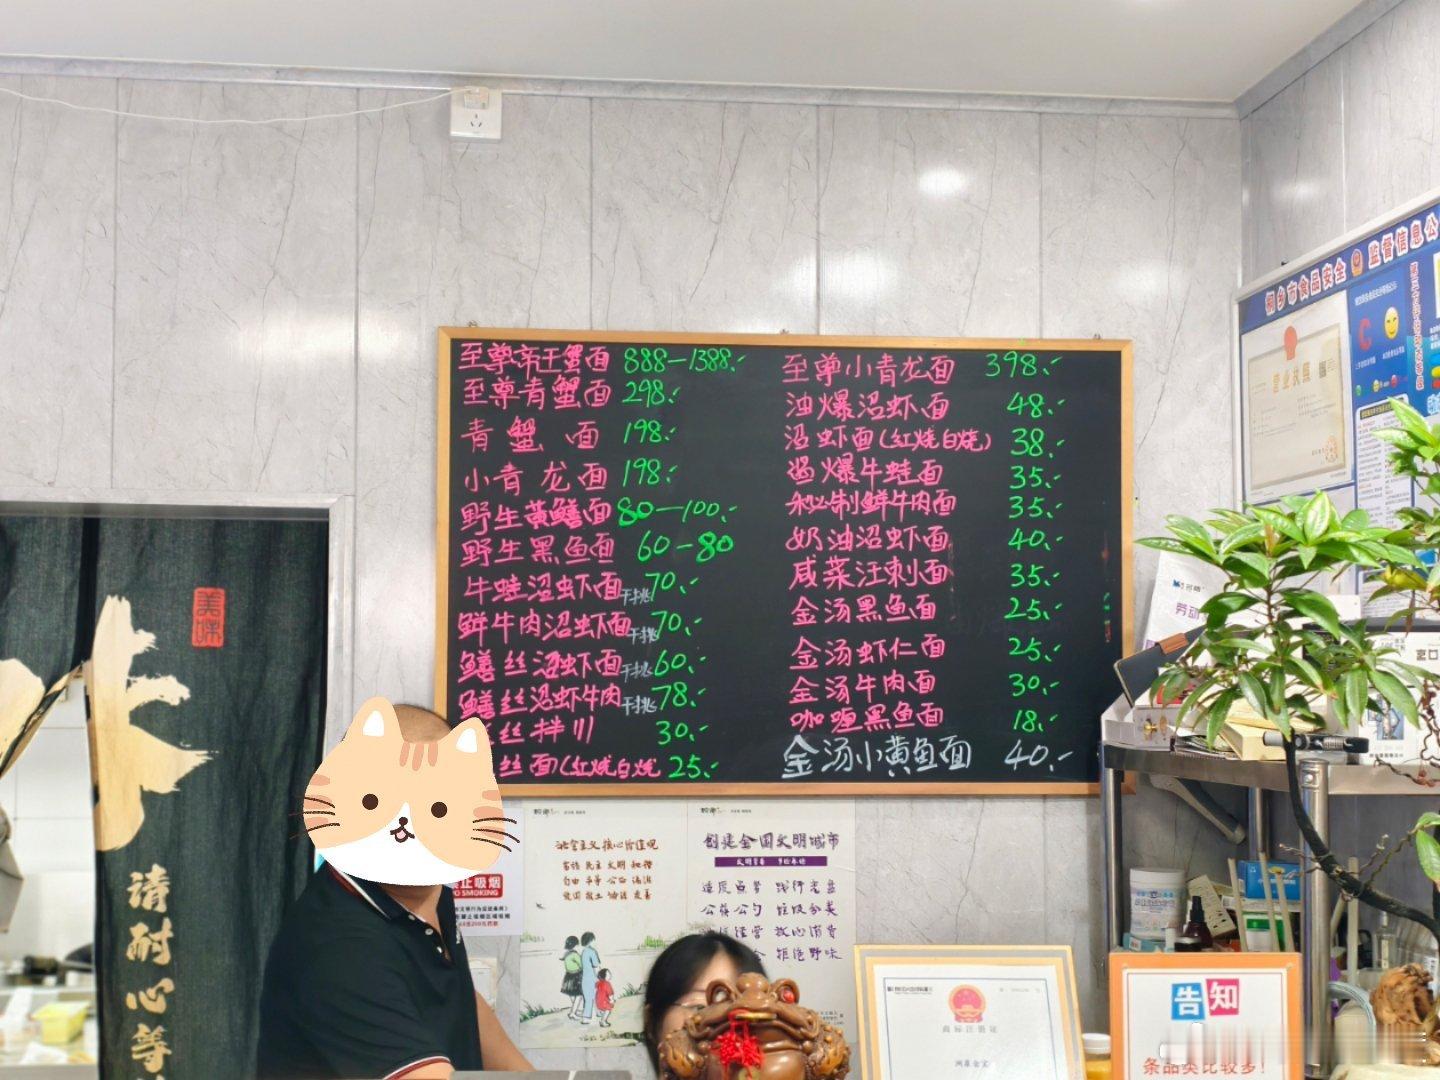 至尊帝王蟹面 888—1388.-
至尊青蟹面 298.-
青蟹面 198.-
小青龙面 198.-
野生黄鳝面 80—100.-
野生黑鱼面 60—80
牛蛙沼虾面干挑 70.-
鲜牛肉沼虾面干挑 70.-
鳝丝沼虾面干挑 60.-
鳝丝沼虾牛肉干挑 78.-
丝拌川 30.-
丝面(红烧白烧 25.-
至尊小青龙面 398.-
油爆沼虾面 48.-
沼虾面(红烧白烧) 38.-
酱爆牛蛙面 35.-
秘制鲜牛肉面 35.-
奶油沼虾面 40.-
咸菜汪刺面 35.-
金汤黑鱼面 25.-
金汤虾仁面 25.-
金汤牛肉面 30.-
咖喱黑鱼面 18.-
金汤小黄鱼面 40.-
桐乡市食品安全 监督信息公
营业执照
美味
请耐心等
禁止吸烟
NO SMOKING
社会主义核心价值观
富强 民主 文明 和谐
自由 平等 公正 法治
爱国 敬业 诚信 友善
创建全国文明城市
适度点餐 践行光盘
公筷公勺 垃圾分类
经营 放心消费
拒绝野味
商标注册证
告知
条品类比较多!
劳动